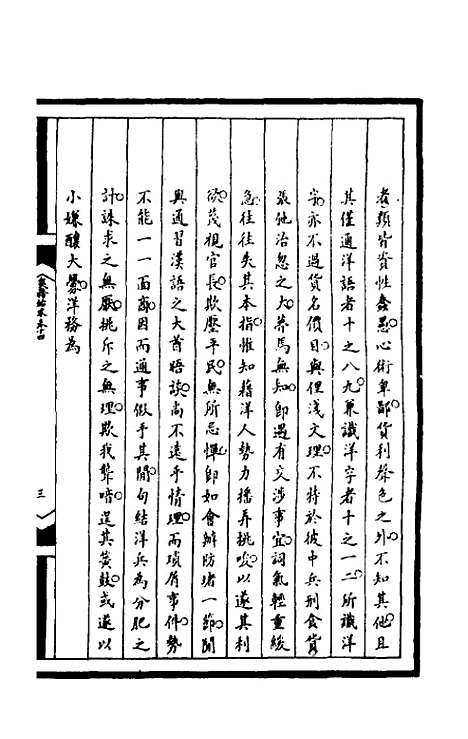 者類皆資性蠢愚心術卑鄙貨利聲色之外不知其他且
其僅通洋語者十之八九兼識洋字者十之一二所識洋
字亦不過貨名價目與俚淺文理不特於彼中兵刑食貨
張弛治忽之大莽焉無知即遇有交涉事宜詞氣輕重緩
急往往失其本指惟知藉洋人勢力播弄挑唆以遂其利
欲蔑視官長欺壓平民無所忌憚即如會辦防堵一節閒
與通習漢語之大酋晤談尚不遠乎情理而瑣屑事件勢
不能一一面商因而通事假手其閒句結洋兵為分肥之
計誅求之無厭挑斥之無理欺我聾喑逞其簧鼓或遂以
小嫌釀大釁洋務為
卷十四
三